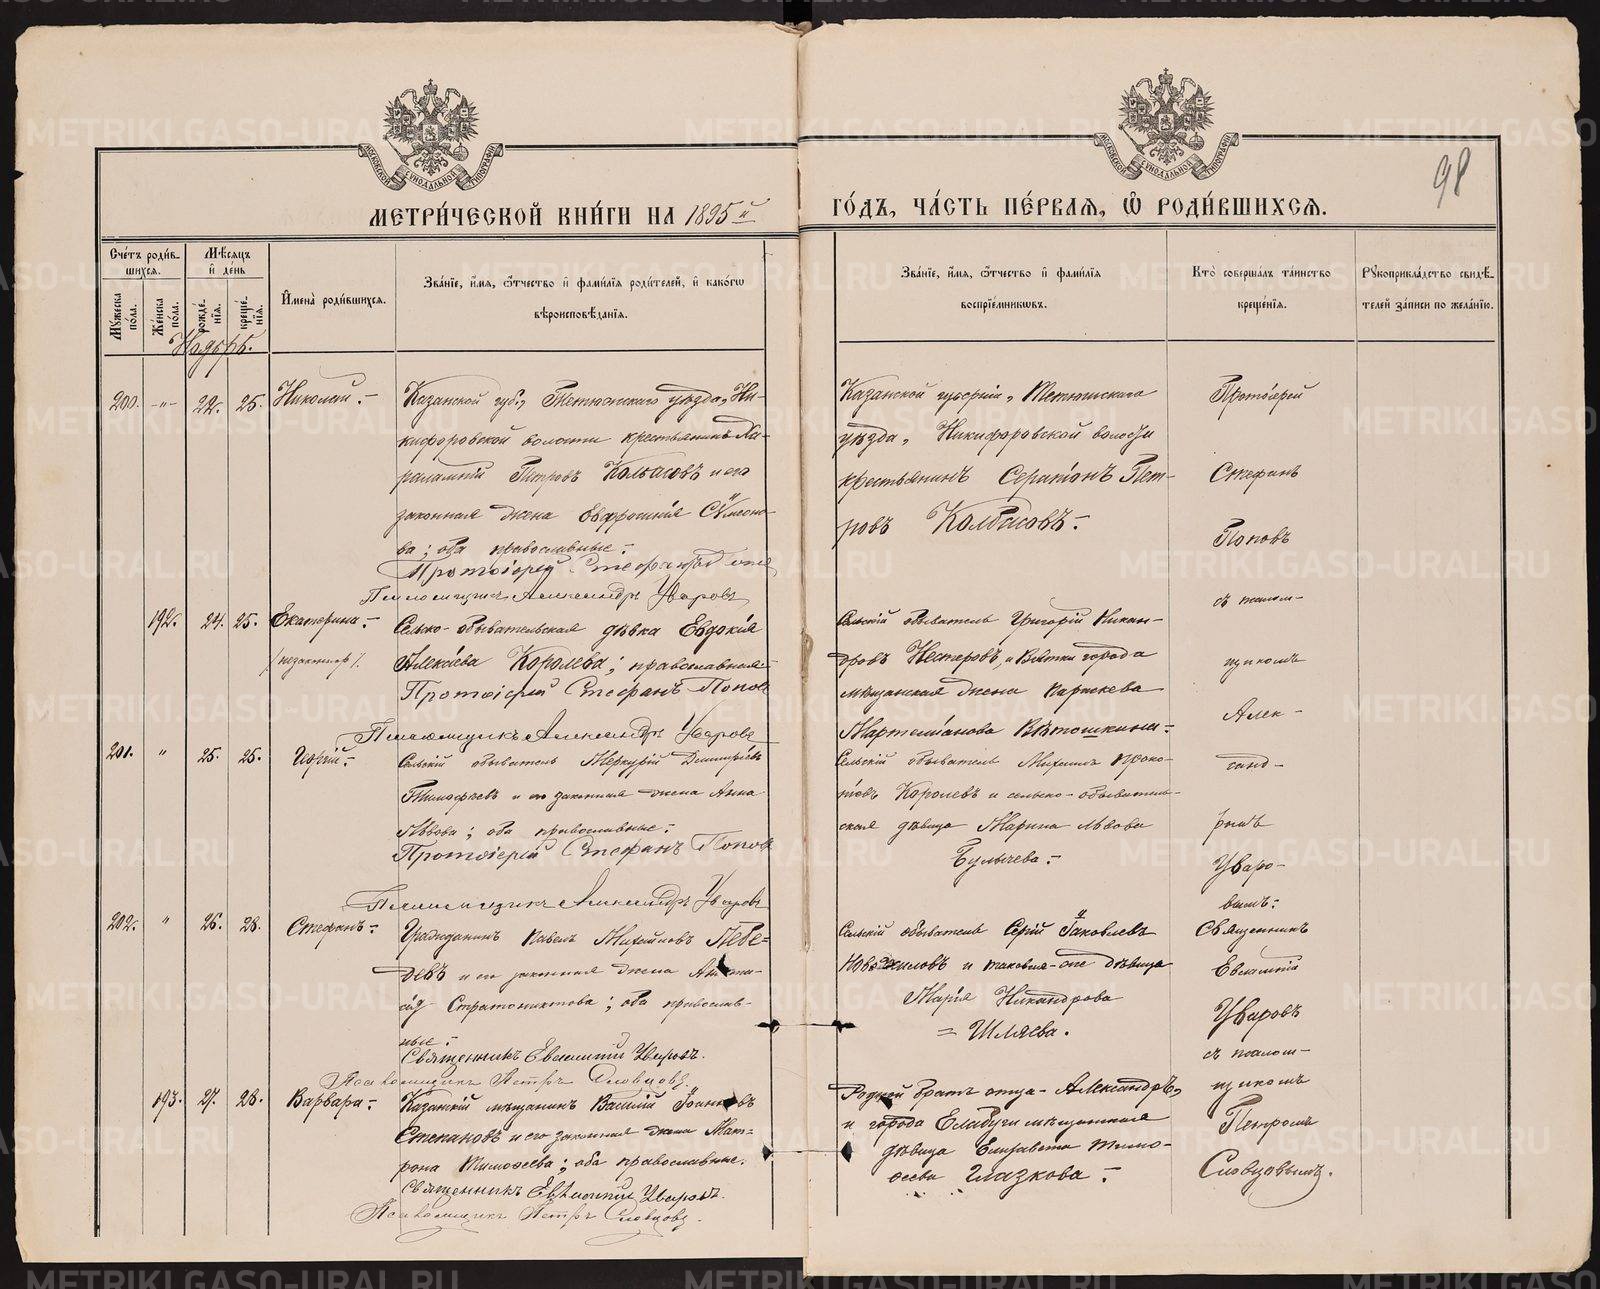 98
МОСКОВСКОЙ СѴНОДАЛЬНОЙ ТИПОГРАФІИ
МОСКОВСКОЙ СѴНОДАЛЬНОЙ ТИПОГРАФІИ
МЕТРИ́ЧЕСКОЙ КНИ́ГИ НА 1895й ГО́ДЪ, ЧА́СТЬ ПЕ́РВАЯ, Ѡ РОДИ́ВШИХСЯ.
Сче́тъ роди́в-
шихся.
Мѣ́сяцъ
и҆ де́нь
Мꙋ́жеска
по́ла.
Же́нска
по́ла.
рожде́-
нїя.
креще́-
нїя.
И҆мена̀ роди́вшихся.
Зва́нїе, и҆́мя, ѻ҆́тчество и҆ фами́лїя роди́телей, и҆ како́гѡ
вѣроисповѣ́данїя.
Зва́нїе, и҆́мя, ѻ҆́тчество и҆ фами́лїя
воспрїе́мникѡвъ.
Кто̀ соверша́лъ та́инство
креще́нїя.
Рꙋкоприкла́дство свидѣ́-
телей за́писи по жела́нїю.
Ноябрь.
200. -"- 22. 25. Николай.-
Казанской губ., Тетюшскаго уѣзда, Ни-
кифоровской волости крестьянинъ Ха-
ралампій Петровъ Колбасовъ и его
законная жена Евфросинія Сѵмеоно-
ва; оба православные.-
Протоіерей Стефанъ Попов
Псаломщикъ Александръ Уваровъ
Казанской губерніи, Тетюшскаго
уѣзда, Никифоровской волости
крестьянинъ Серапіонъ Пет-
ровъ Колбасовъ.-
Протоіерей
Стефанъ
Поповъ
съ псалом-
щикомъ
Алек-
санд-
ромъ
Уваро-
вымъ.-
192. 24. 25. Екатерина.-
/незаконнор/.
Сельско-обывательская дѣвка Евдокія
Алексѣева Королева; православная
Протоіерей Стефанъ Попов
Псаломщикъ Александръ Уваровъ
Сельскій обыватель Григорій Никан-
дровъ Нестеровъ, и Вятки города
мѣщанская жена Параскева
Мартеміанова Вѣтошкина.-
201. " 25. 25. Георгій.-
Сельскій обыватель Меркурій Димитріевъ
Тимофеевъ и его законная жена Анна
Львова; оба православные.-
Протоіерей Стефанъ Попов
Псаломщикъ Александръ Уваровъ
Сельскій обыватель Михаилъ Проко-
піевъ Королевъ и сельско-обыватель-
ская дѣвица Марина Львова
Булычева.-
202. " 26. 28. Стефанъ.-
Гражданинъ Павелъ Михайловъ Лебе-
девъ и его законная жена
Стратониктова; оба православ-
ные.-
Священникъ Евлампій Уваровъ.
Псаломщикъ Петръ Словцовъ.
Сельскій обыватель Сергій Іаковлевъ
и таковая-же дѣвица
Марія Никандрова
= Шляева.
Священникъ
Евлампій
Уваровъ
съ псалом-
щикомъ
Петромъ
Словцовымъ.
193. 27. 28. Варвара.-
Казанскій мѣщанинъ Василій Іоанновъ
Степановъ и его законная жена Мат-
рона Тимоѳеева; оба православные.
Священникъ Евлампій Уваровъ.
Псаломщикъ Петръ Словцовъ.
Родной братъ отца - Александръ,
и города Елабуги мѣщанская
дѣвица Елизавета Тимо-
ѳеева Глазкова.-
METRIKI.GASO-URAL.RU